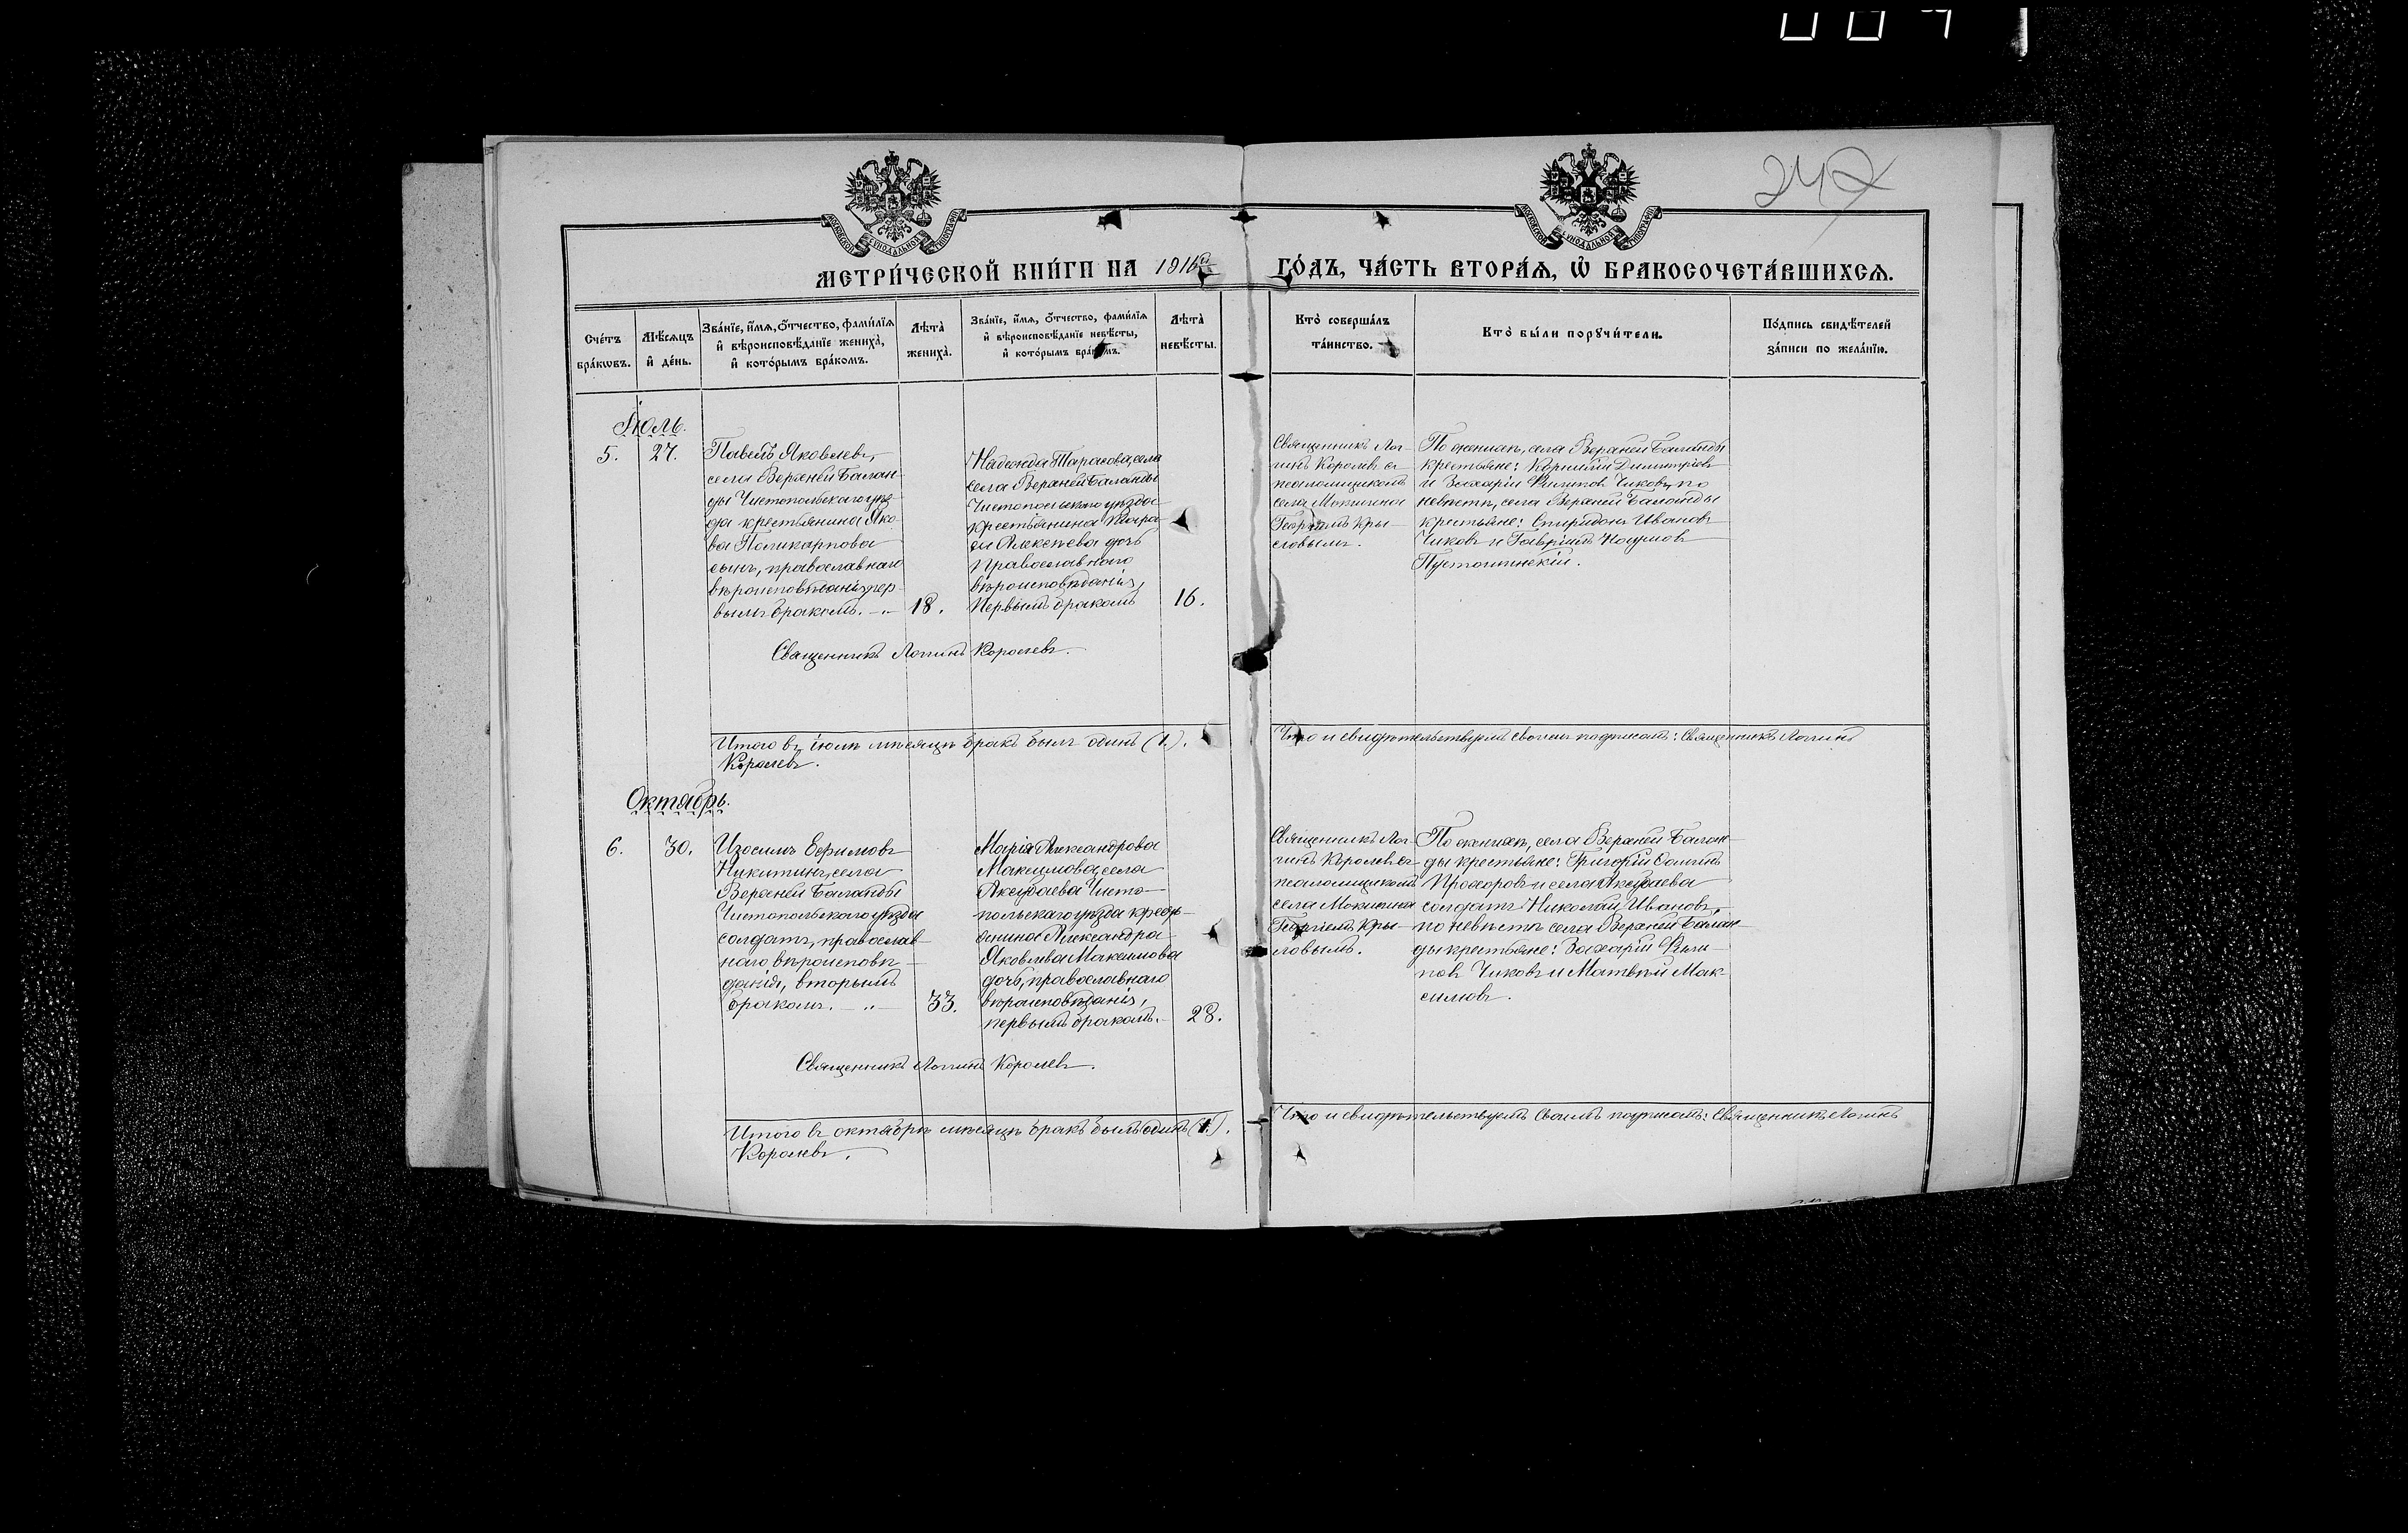 247
МОСКОВСКОЙ СѴНОДАЛЬНОЙ ТИПОГРАФІИ
МОСКОВСКОЙ СѴНОДАЛЬНОЙ ТИПОГРАФІИ
МЕТРИ́ЧЕСКОЙ КНИ́ГИ НА 1916й ГО́ДЪ, ЧА́СТЬ ВТОРА́Ѧ, Ѽ БРАКОСОЧЕТА́ВШИХСѦ.
Сче́тъ бра́кѡвъ.
Мѣ́сѧцъ и҆ де́нь.
Зва́нїе, и҆́мѧ, ѻ҆́тчество, фами́лїѧ и҆ вѣроисповѣ́данїе жениха̀, и҆ кото́рымъ бра́комъ.
Лѣта̀ жениха̀.
Зва́нїе, и҆́мѧ, ѻ҆́тчество, фами́лїѧ и҆ вѣроисповѣ́данїе невѣ́сты, и҆ кото́рымъ бра́комъ.
Лѣта̀ невѣ́сты.
Кто̀ соверша́лъ та́инство.
Кто̀ бы́ли порꙋчи́тели.
По́дпись свидѣ́телей за́писи по жела́нїю.
Іюль.
5.
27.
Павелъ Яковлевъ,
села Верхней Балан-
ды Чистопольскаго уѣз-
да крестьянина Яко-
ва Поликарпова
сынъ, православнаго
вѣроисповѣданія, пер-
вымъ бракомъ. -„-
18.
Надежда Тарасова, села
села Верхней Баланды
Чистопольскаго уѣзда
крестьянина Тара-
сія Алексѣева дочь
Православнаго
вѣроисповѣданія,
Первымъ бракомъ
16.
Священникъ Лог-
гинъ Королевъ съ
псаломщикомъ
села Мокшина
Георгіемъ Кры-
ловымъ.
По женихѣ, села Верхней Баланды
крестьяне: Корнилій Димитріевъ
и Захарій Филиповъ Чиковъ, по
невѣстѣ, села Верхней Баланды
крестьяне: Спиридонъ Ивановъ
Чиковъ и Гавріилъ Наумовъ
Пустошинскій.
Священникъ Логгинъ Королевъ.
Итого въ іюлѣ мѣсяцѣ бракъ былъ одинъ (1.). Что и свидѣтельствуемъ своимъ подписомъ: Священникъ Логгинъ
Королевъ.
Октябрь.
6.
30.
Изосимъ Ефимовъ
Никитинъ, села
Верхней Баланды
Чистопольскаго уѣзда
солдатъ, православ-
наго вѣроисповѣ-
данія, вторымъ
бракомъ. -„-
33.
Марія Александрова
Максимова, села
Аксубаева Чисто-
польскаго уѣзда кресть-
янина Александра
Яковлева Максимова
дочь, православнаго
вѣроисповѣданія,
первымъ бракомъ.
28.
Священникъ Лог-
гинъ Королевъ съ
псаломщикомъ
села Мокшина
Георгіемъ Кры-
ловымъ.
По женихѣ, села Верхней Балан-
ды крестьяне: Григорій
Прохоровъ и села Аксубаева
солдатъ Николай Ивановъ,
по невѣстѣ села Верхней Балан-
ды крестьяне: Захарій Фили-
повъ Чиковъ и Матвѣй Мак-
симовъ.
Священникъ Логгинъ Королевъ.
Итого въ октябрѣ мѣсяцѣ бракъ былъ одинъ (1.). Что и свидѣтельствуемъ своимъ подписомъ: Священникъ Логгинъ
Королевъ.